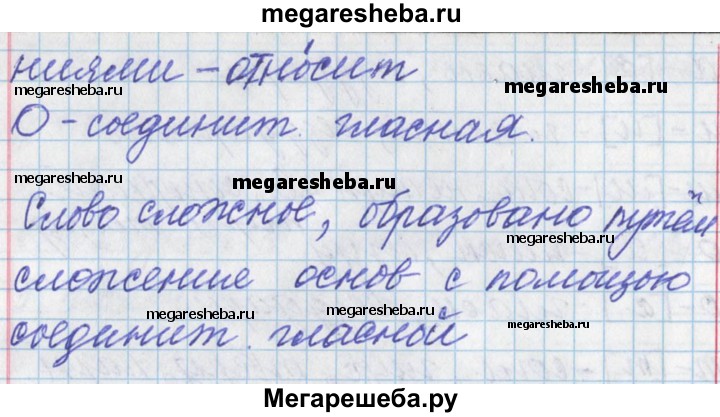 megaresheba.ru
ниями - относит
megaresheba.ru
megaresheba.ru
О - соединит. гласная.
megaresheba.ru
megaresheba.ru
Слово сложное, образовано путём
megaresheba.ru
сложение основ с помощью
megaresheba.ru
megaresheba.ru
megaresheba.ru
соединит. гласной
Мегарешеба.ру